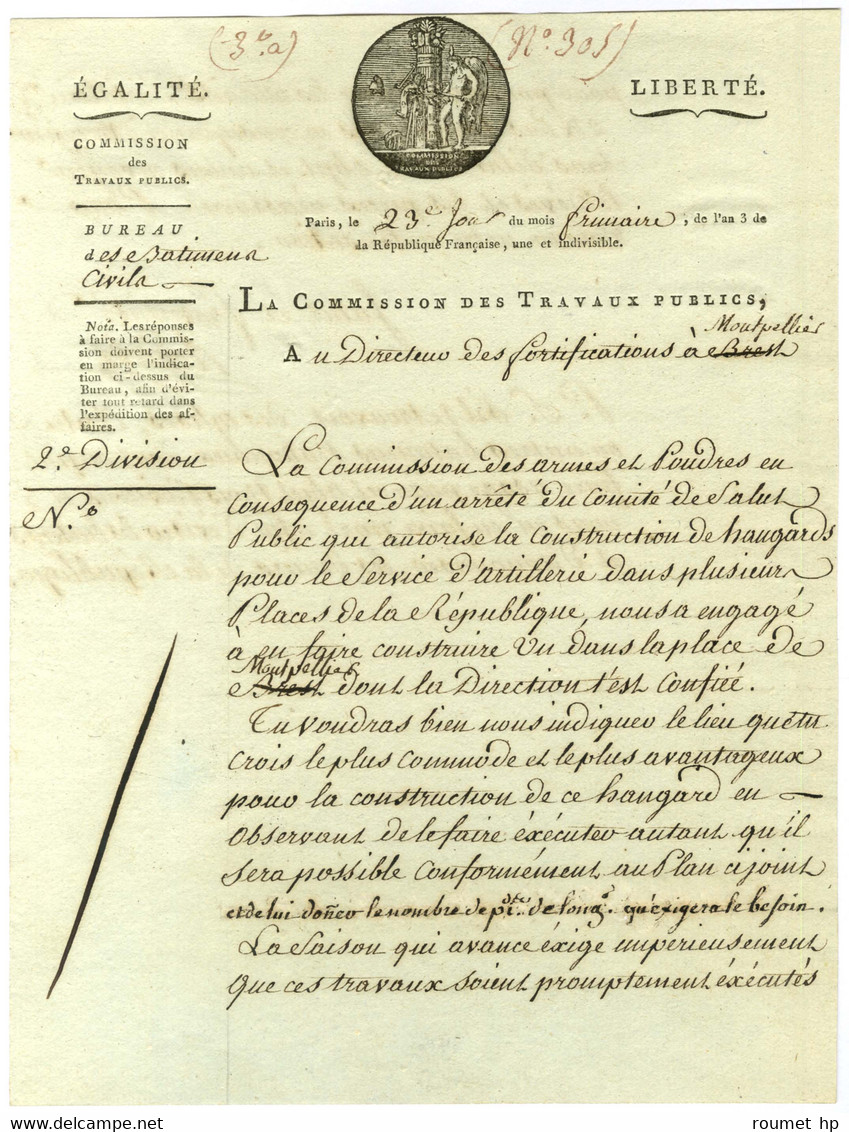 (3e. a)
(N°. 305)
ÉGALITÉ.
LIBERTÉ.
COMMISSION
DES
TRAVAUX PUBLICS
COMMISSION
des
TRAVAUX PUBLICS.
BUREAU
des Batimens
Civils
Nota. Les réponses
à faire à la Commis-
sion doivent porter
en marge l'indica-
tion ci-dessus du
Bureau, afin d'évi-
ter tout retard dans
l'expédition des af-
faires.
2e. Division
N°.
Paris, le 23e Jour du mois frimaire, de l'an 3 de
la République Française, une et indivisible.
LA COMMISSION DES TRAVAUX PUBLICS,
Montpellier
Au Directeur des fortifications à Brest
La Commission des armes et Poudres en
Conséquence d'un arrêté du Comité de Salut
Public qui autorise la Construction de hangards
pour le Service d'artillerie dans plusieurs
Places de la République, nous a engagé
à en faire construire un dans la place de
Montpellier
Brest dont la Direction t'est Confiée.
Tu voudras bien nous indiquer le lieu que tu
Crois le plus Commode et le plus avantageux
pour la construction de ce hangard en
Observant de le faire éxécuter autant qu'il
Sera possible Conformément au Plan cijoint
et de lui doñer le nombre de pi.ds de long.r qu'éxigera le besoin.
La Saison qui avance éxige impérieusement
Que ces travaux soient promptement éxécutés
roumet hp
www.delcampe.net